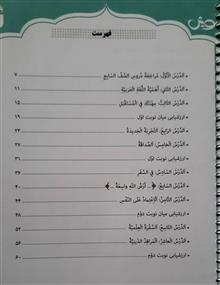 فهرست
اَلدَّرْسُ الْأَوَّلُ: مُراجَعَةُ دُروسِ الصَّفِّ السّابِعِ ۷
اَلدَّرْسُ الثّاني: أَهَمّيَّةُ اللُّغَةِ الْعَرَبيَّةِ ۱۱
اَلدَّرْسُ الثّالِثُ: مِهْنَتُكَ فِي الْمُسْتَقْبَلِ ۱۵
ارزشیابی میان نوبت اوّل ۱۹
اَلدَّرْسُ الرّابِعُ: اَلتَّجْرِبَةُ الْجَديدَةُ ۲۳
اَلدَّرْسُ الْخامِسُ: اَلصَّداقَةُ ۲۷
ارزشیابی نوبت اوّل ۳۱
اَلدَّرْسُ السّادِسُ: فِي السَّفَرِ ۳۶
اَلدَّرْسُ السّابِعُ: ﴿... أَرْضُ اللهِ واسِعَةٌ ...﴾ ۴۰
اَلدَّرْسُ الثّامِنُ: اَلِاعْتِمادُ عَلَی النَّفْسِ ۴۴
ارزشیابی میان نوبت دوّم ۴۸
اَلدَّرْسُ التّاسِعُ: اَلسَّفْرَةُ الْعِلْميَّةُ ۵۲
اَلدَّرْسُ الْعاشِرُ: اَلْمَراقِدُ الدّينيَّةُ ۵۶
ارزشیابی نوبت دوّم ۶۰